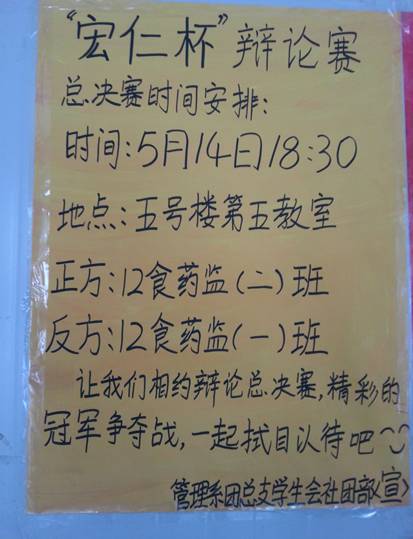 “宏仁杯”辩论赛
总决赛时间安排:
时间:5月14日18:30
地点:五号楼第五教室
正方:12食药监(二)班
反方:12食药监(一)班
让我们相约辩论总决赛,精彩的
冠军争夺战,一起拭目以待吧
管理系团总支学生会社团部〈宣〉